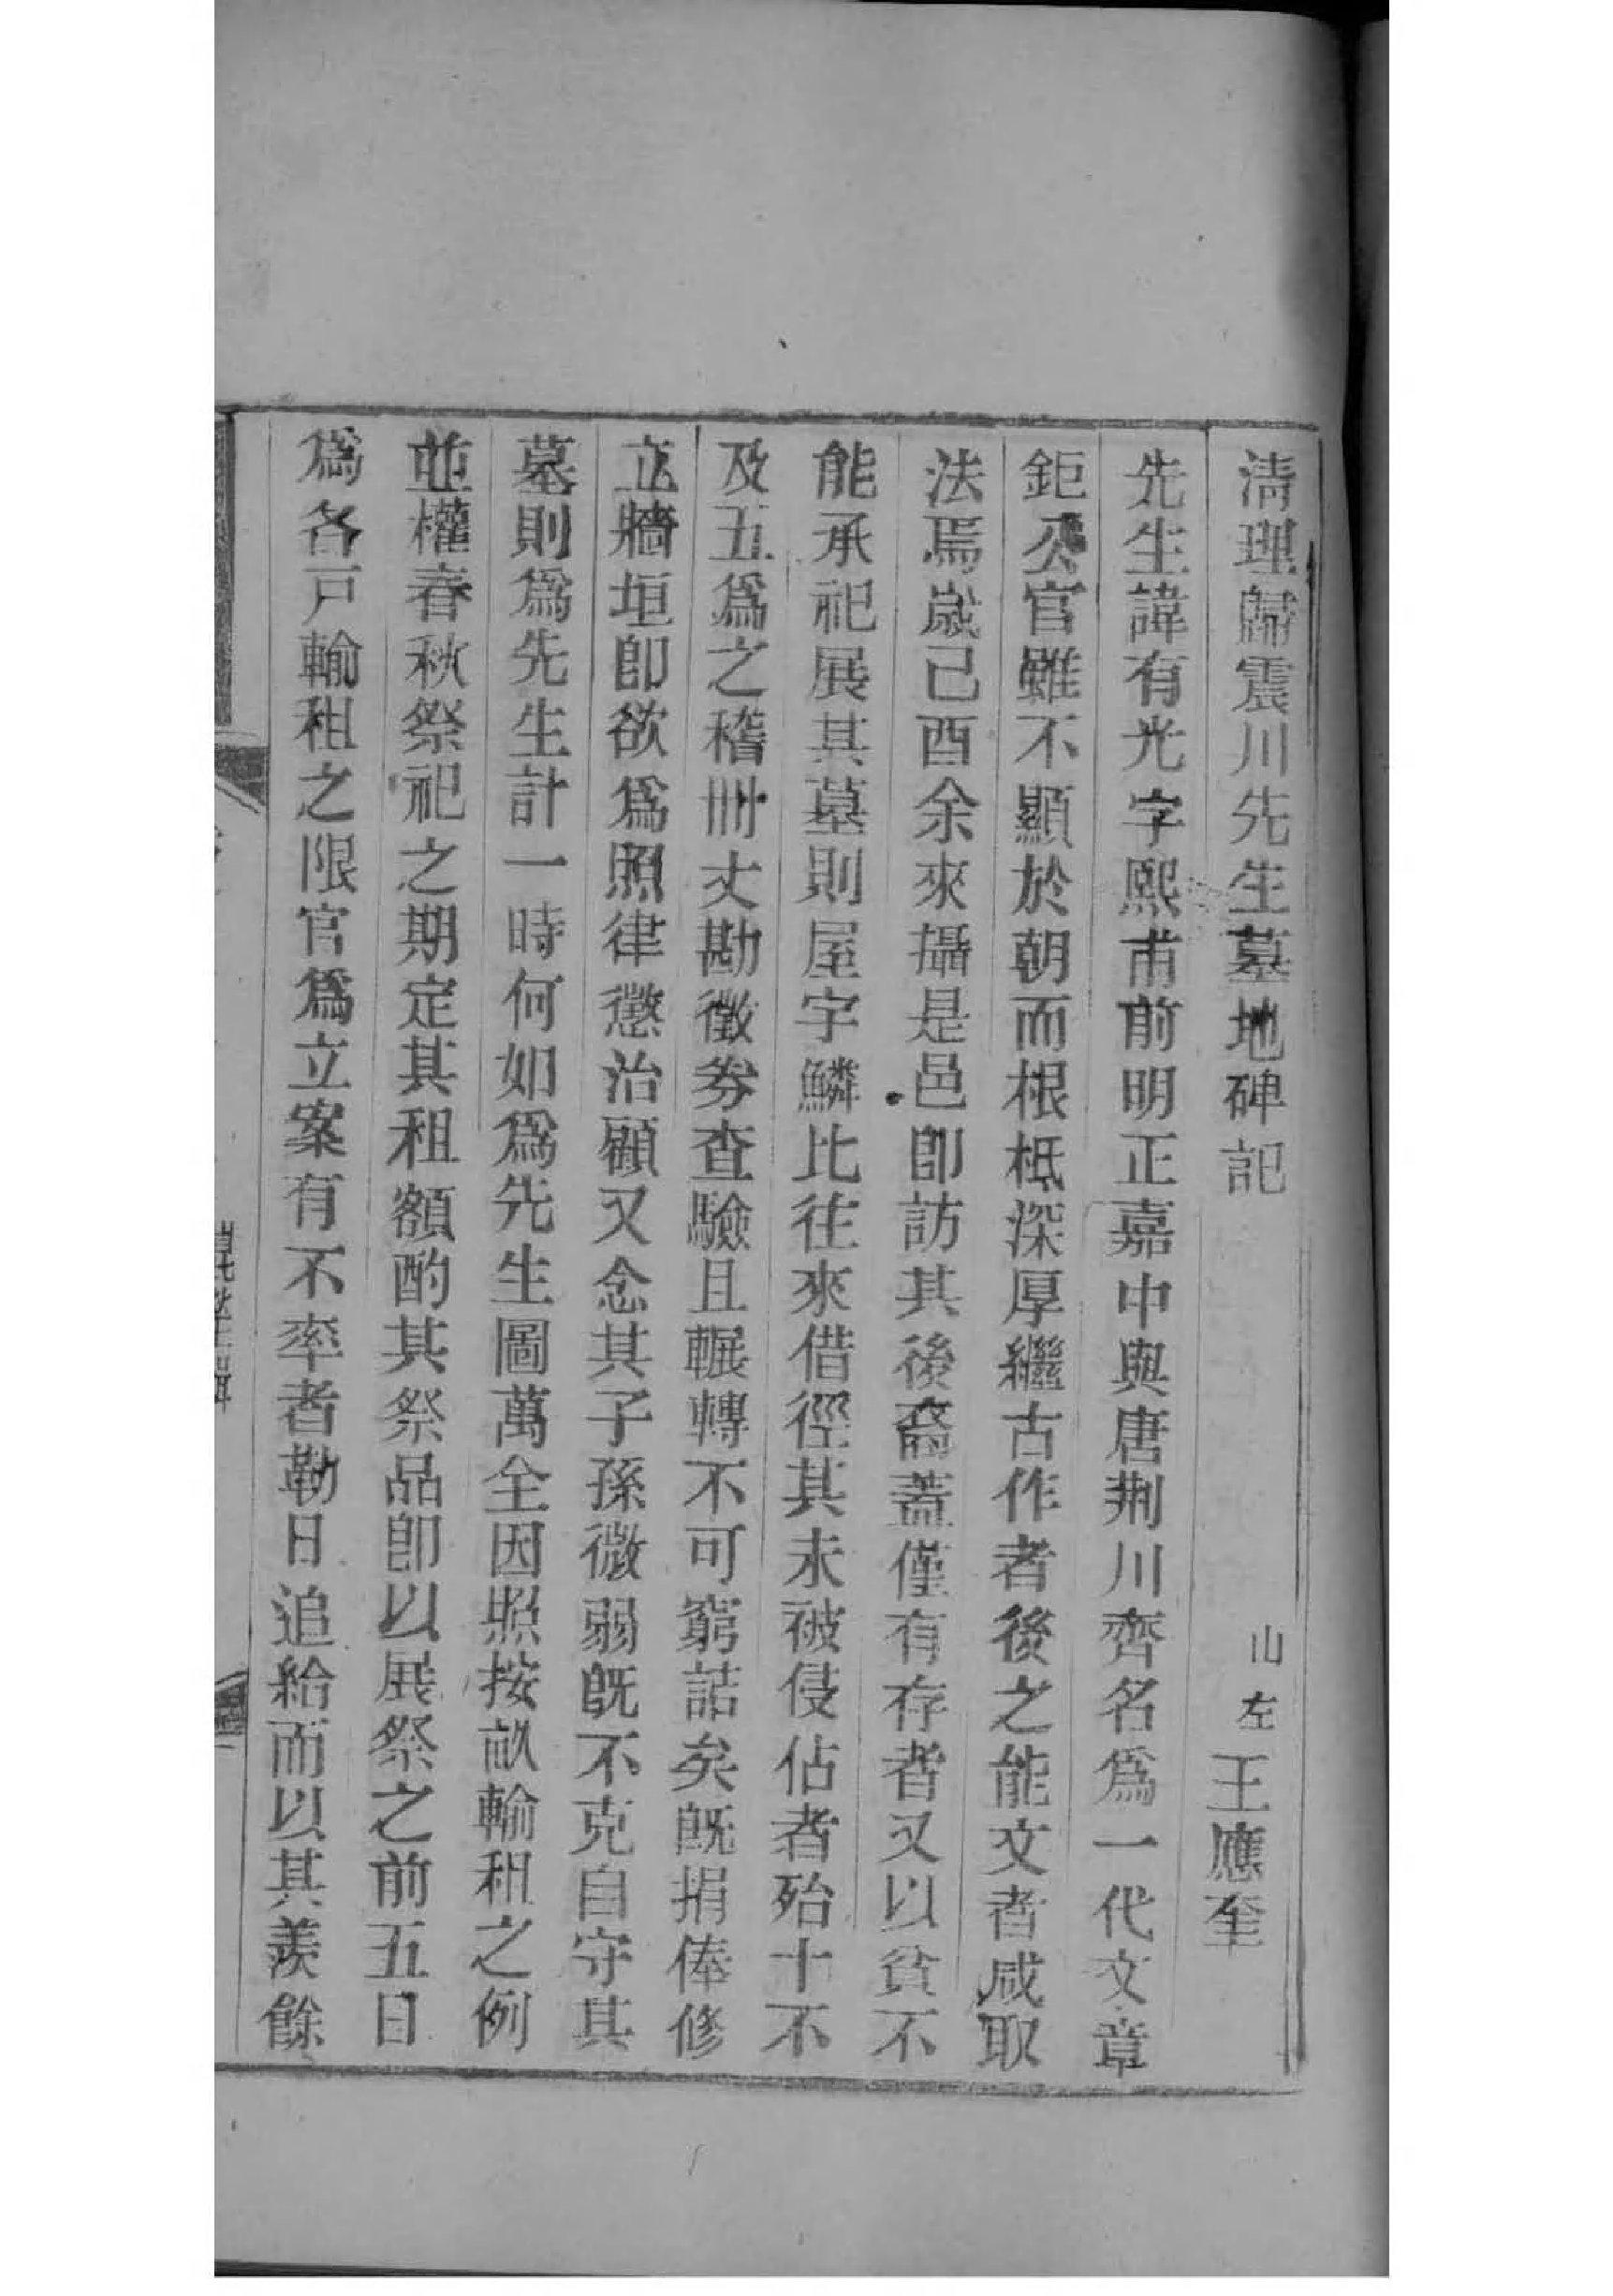 清理歸震川先生墓地碑記　山左王應奎
先生諱有光字熙甫前明正嘉中與唐荆川齊名爲一代文章
鉅公官雖不顯於朝而根柢深厚繼古作者後之能文者咸取
法焉歲己酉余來攝是邑卽訪其後裔蓋僅有存者又以貧不
能承祀展其墓則屋宇鱗比往來借徑其未被侵佔者殆十不
及五爲之稽冊丈勘徵劵查驗且輾轉不可窮詰矣旣捐俸修
立牆垣卽欲爲照律懲治顧又念其子孫微弱旣不克自守其
墓則爲先生計一時何如爲先生圖萬全因照按畝輸租之例
並權春秋祭祀之期定其租額酌其祭品卽以展祭之前五日
爲各戸輸租之限官爲立案有不率者勒日追給而以其羨餘